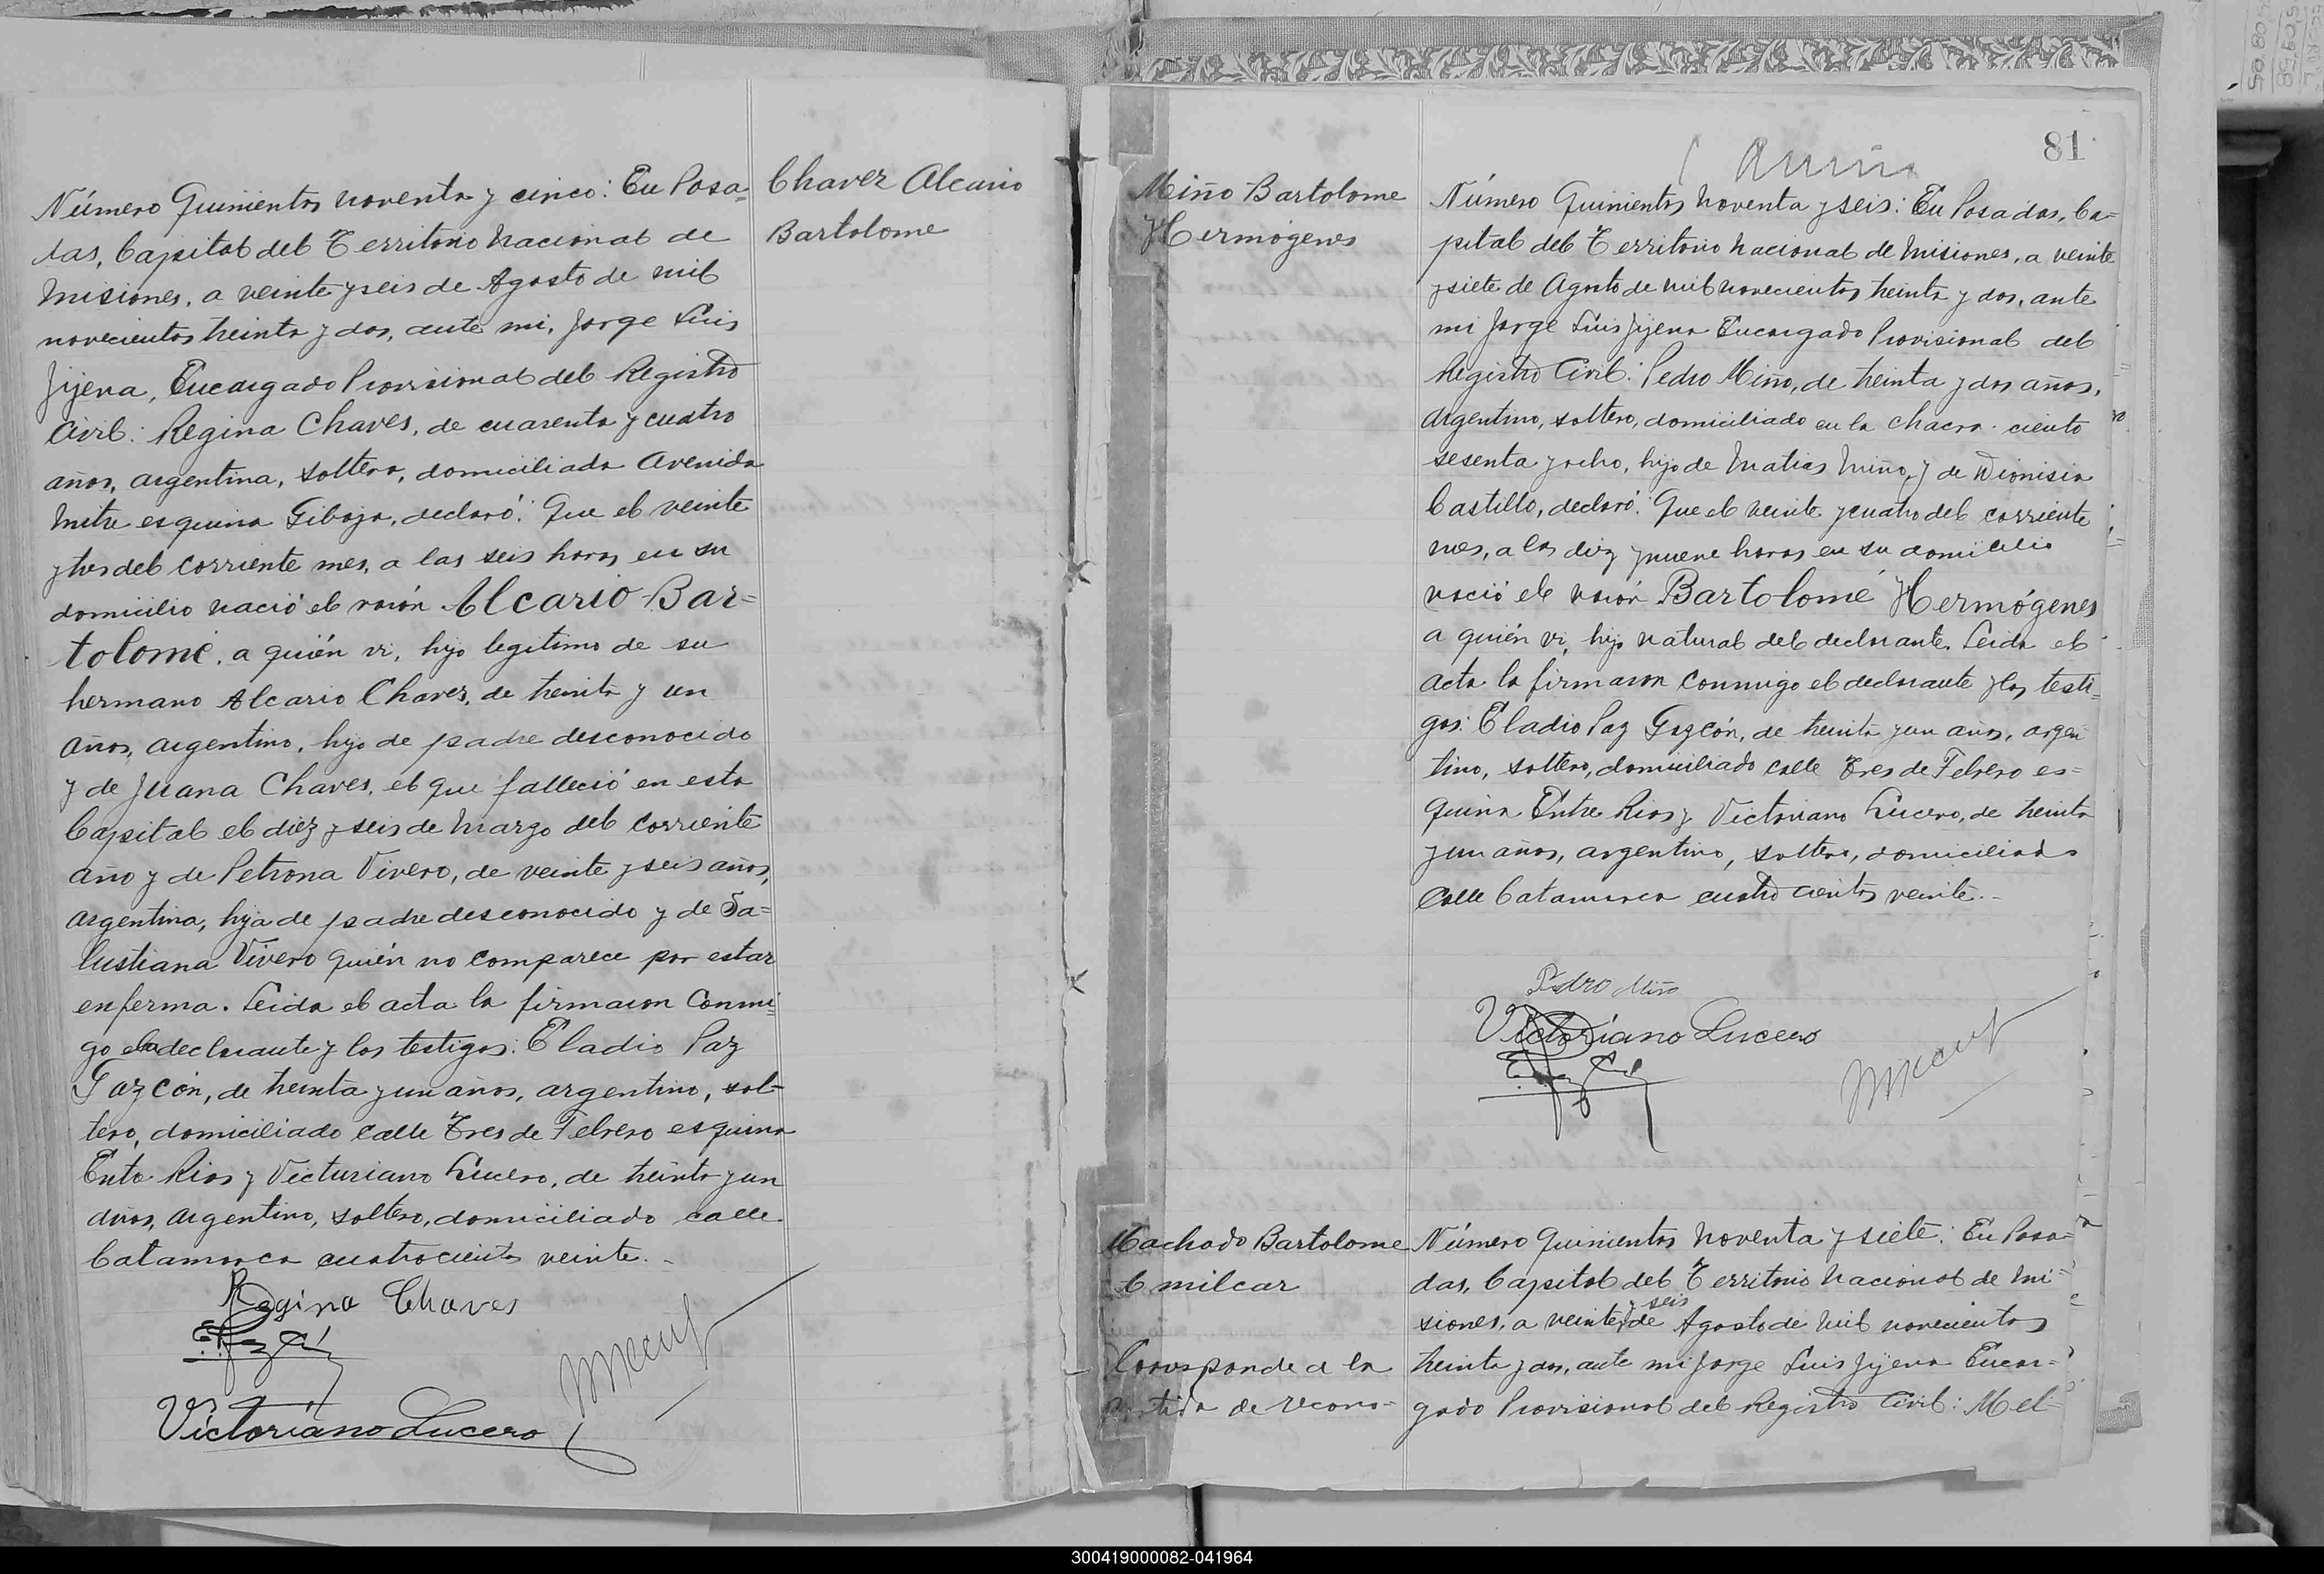 Número Quinientos noventa y cinco: En Posa=
das, Capital del Territorio Nacional de
Misiones, a veinte y seis de Agosto de mil
novecientos treinta y dos, ante mi, Jorge Luis
Jijena, Encargado Provisional del Registro
Civil: Regina Chaves, de cuarenta y cuatro
años, argentina, soltera, domiciliada Avenida
Mitre esquina Gibaja, declaró: Que el veinte
y tres del corriente mes, a las seis horas, en su
domicilio nació el varón Alcario Bar=
tolomé, a quién vi, hijo legitimo de su
hermano Alcario Chaves, de treinta y un
años, argentino, hijo de padre desconocido
y de Juana Chaves, el que falleció en esta
Capital el diez y seis de Marzo del corriente
año y de Petrona Vivero, de veinte y seis años,
argentina, hija de padre desconocido y de Sa=
lustiana Vivero quién no comparece por estar
enferma. Leida el acta la firmaron conmi=
go la declarante y los testigos: Eladio Paz
Gazcón, de treinta y un años, argentino, sol=
tero, domiciliado calle Tres de Febrero esquina
Entre Rios y Victuriano Lucero, de treinta y un
años, argentino, soltero, domiciliado calle
Catamarca cuatrocientos veinte.-
Regina Chaves
Victoriano Lucero
Chavez Alcario
Bartolome
81
Miño Bartolome
Hermógenes
Número Quinientos Noventa y seis: En Posadas, Ca=
pital del Territorio Nacional de Misiones, a veinte
y siete de Agosto de mil novecientos treinta y dos, ante
mi Jorge Luis Jijena Encargado Provisional del
Registro Civil: Pedro Miño, de treinta y dos años,
argentino, soltero, domiciliado en la chacra ciento
sesenta y ocho, hijo de Matias Miño y de Dionisia
Castillo, declaró: Que el veinte y cuatro del corriente
mes, a las diez y nueve horas en su domicilio
nació el varón Bartolomé Hermógenes
a quién vi, hijo natural del declarante. Leida el
acta la firmaron conmigo el declarante y los testi=
gos: Eladio Paz Gazcón, de treinta y un años, argen
tino, soltero, domiciliado calle Tres de Febrero es=
quina Entre Rios y Victoriano Lucero, de treinta
y un años, argentino, soltero, domiciliado
calle Catamarca cuatrocientos veinte.-
Pedro Miño
Victoriano Lucero
Machado Bartolome
Amilcar
Corresponde a la
partida de recono=
Número Quinientos Noventa y siete: En Posa=
das, Capital del Territorio Nacional de Mi=
y seis
siones, a veinte de Agosto de mil novecientos
treinta y dos, ante mi Jorge Luis Jijena Encar=
gado Provisional del Registro Civil: Mel=
300419000082-041964